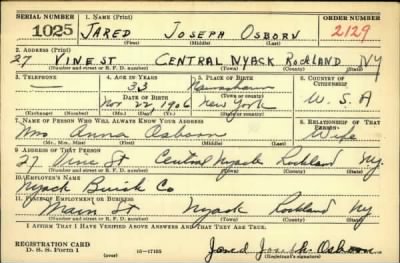 SERIAL NUMBER 1. NAME (Print) ORDER NUMBER
1025 JARED JOSEPH OSBORN 2129
(First) (Middle) (Last)
2. ADDRESS (Print)
27 VINE ST CENTRAL NYACK Rockland NY
(Number and street or R. F. D. number) (Town) (County) (State)
3. TELEPHONE 4. AGE IN YEARS 5. PLACE OF BIRTH 6. COUNTRY OF CITIZENSHIP
— 33
DATE OF BIRTH (Town or county)
Nov 22, 1906 New York U. S. A
(Exchange) (Number) (Mo.) (Day) (Yr.) (State or country)
7. NAME OF PERSON WHO WILL ALWAYS KNOW YOUR ADDRESS 8. RELATIONSHIP OF THAT PERSON
Mrs Anna Osborn Wife
(Mr., Mrs., Miss) (First) (Middle) (Last)
9. ADDRESS OF THAT PERSON
27 Vine St Central Nyack Rockland Ny.
(Number and street or R. F. D. number) (Town) (County) (State)
10. EMPLOYER'S NAME
Nyack Buick Co
11. PLACE OF EMPLOYMENT OR BUSINESS
Main St Nyack Rockland Ny
(Number and street or R. F. D. number) (Town) (County) (State)
I AFFIRM THAT I HAVE VERIFIED ABOVE ANSWERS AND THAT THEY ARE TRUE.
REGISTRATION CARD
D. S. S. FORM 1 (over) 16—17105 Jared Joseph Osborn
(Registrant's signature)